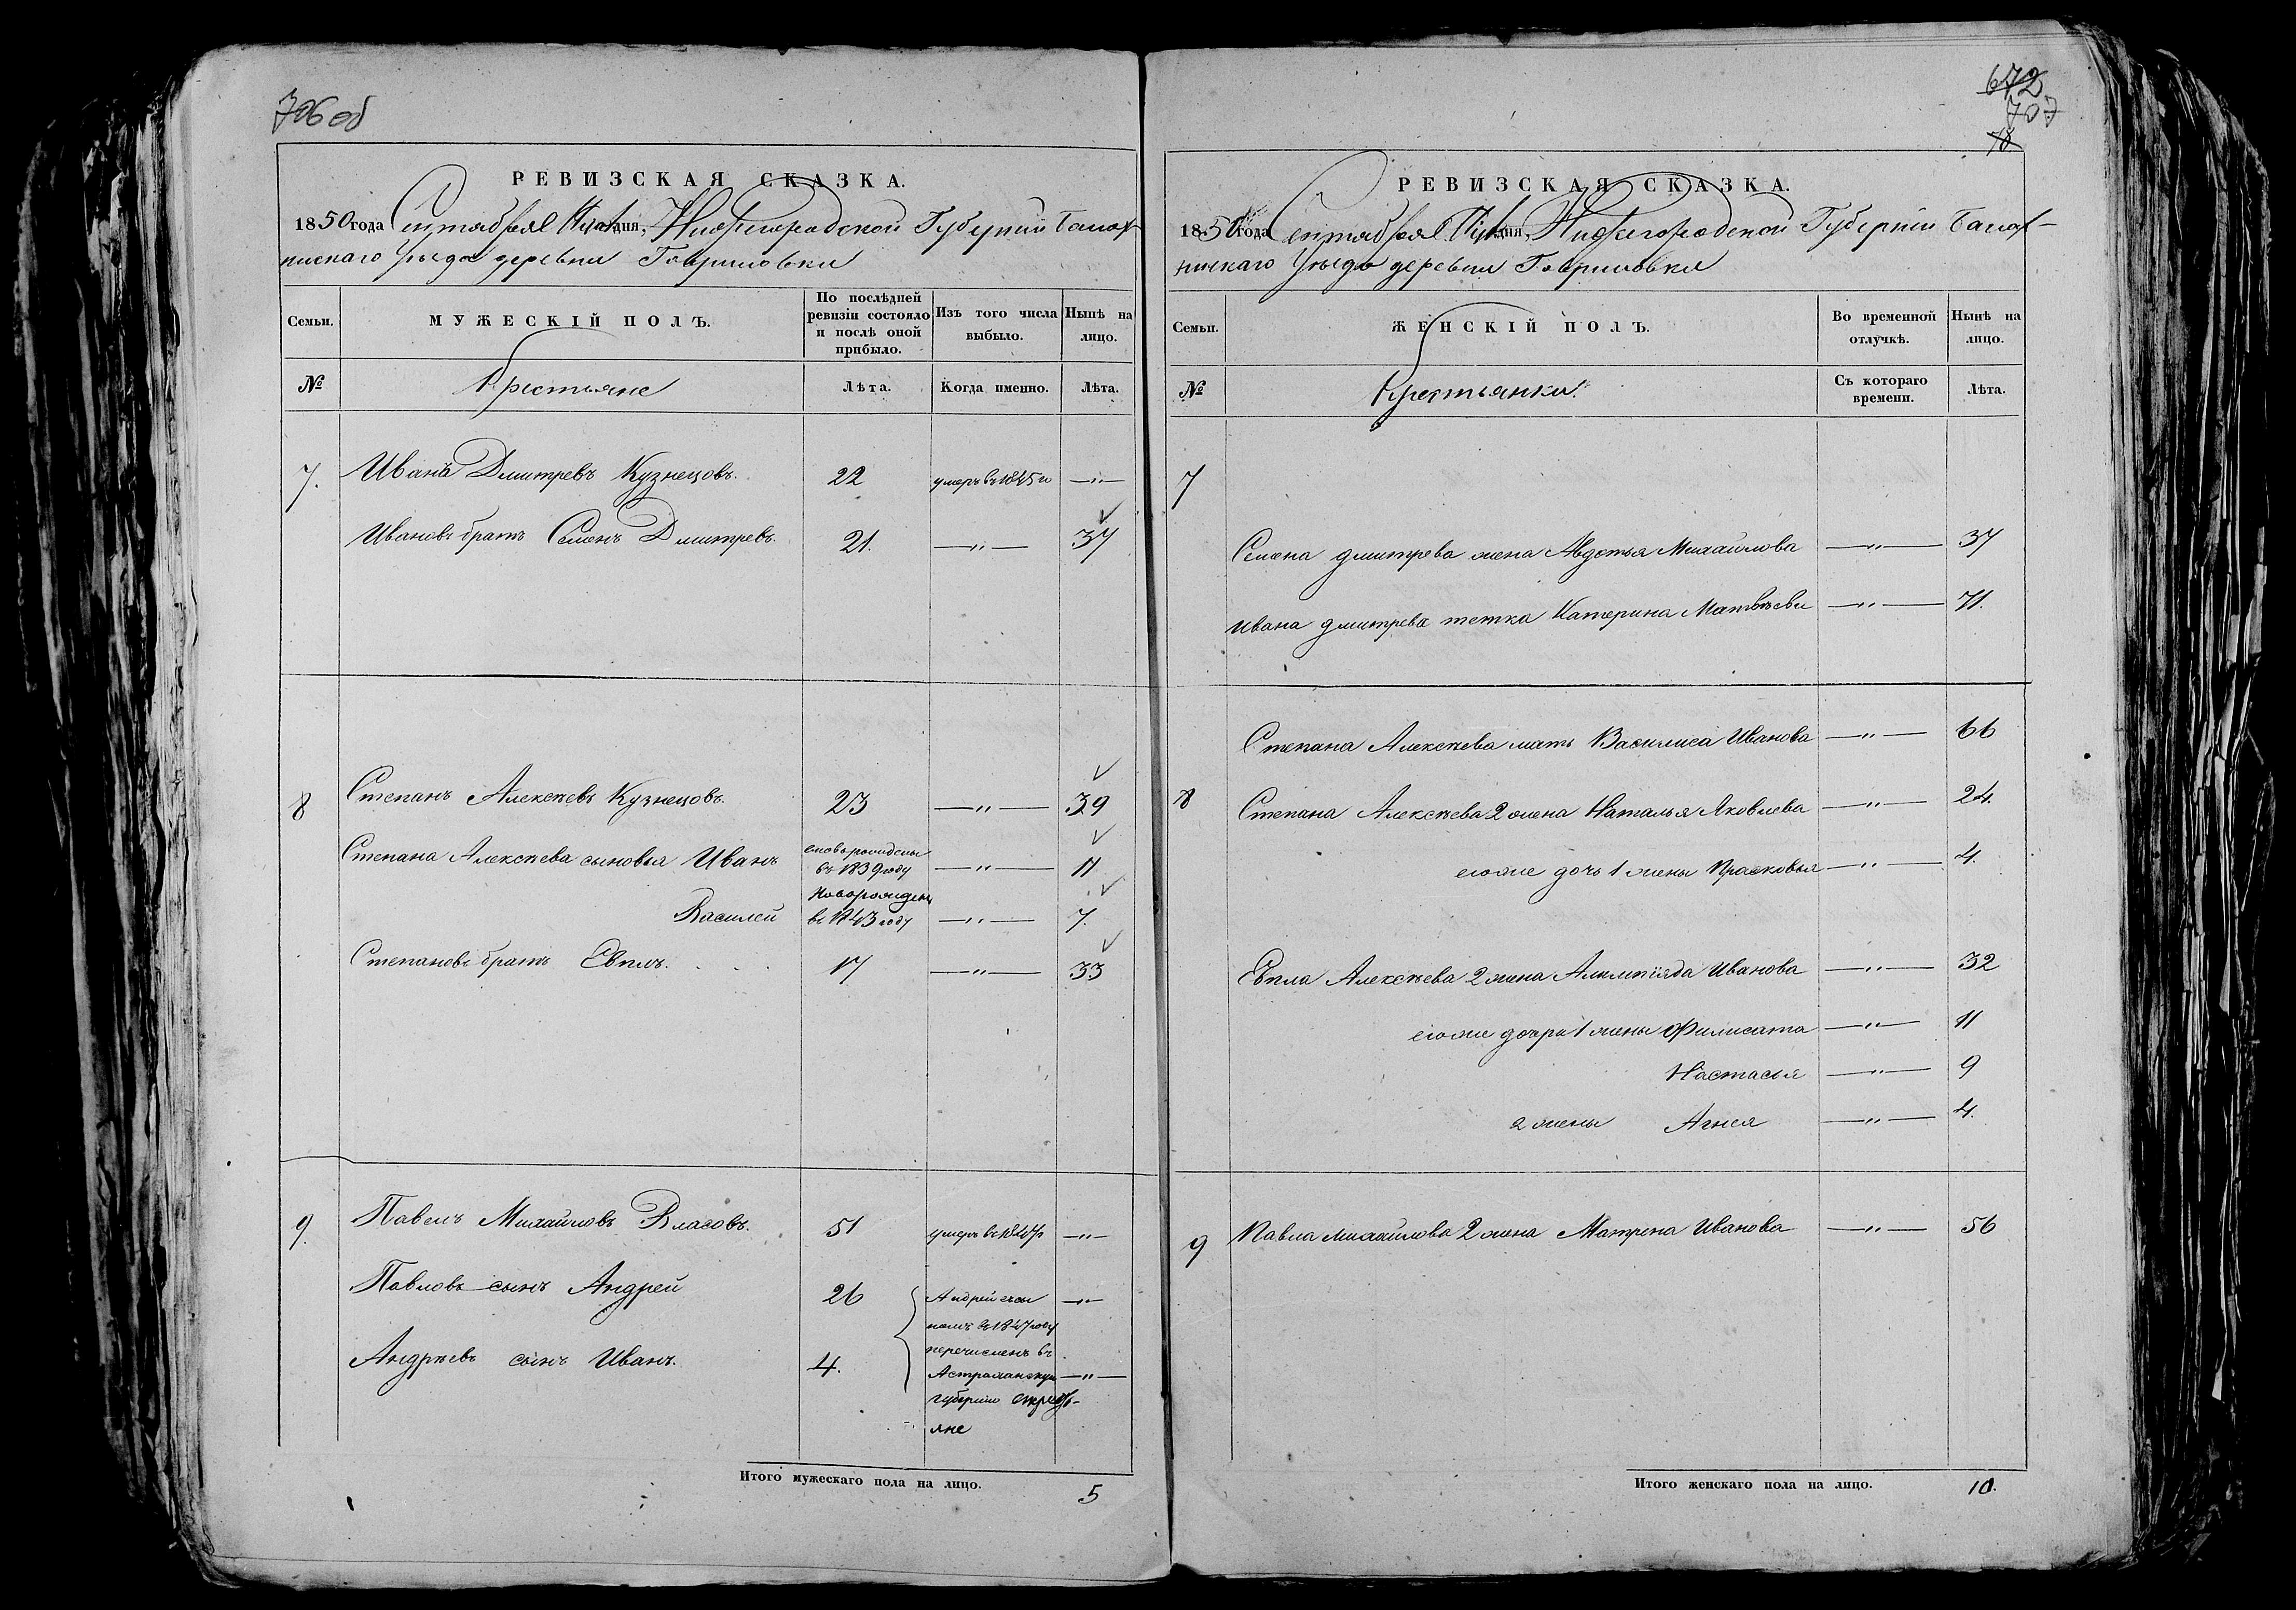 706 об
РЕВИЗСКАЯ СКАЗКА.
1850 года Сентября дня, Нижегородской Губернии Балах-
нинскаго уезда деревни Гавриловки
Семьи.
МУЖЕСКІЙ ПОЛЪ.
По послѣдней ревизіи состояло и послѣ оной прибыло.
Изъ того числа выбыло.
Нынѣ на лицо.
№
Крестьяне
Лѣта.
Когда именно.
Лѣта.
7. Иванъ Дмитревъ Кузнецовъ. 22 умеръ въ 1845 го —"—
Ивановъ братъ Семенъ Дмитревъ 21. —"— 37
8 Степанъ Алексѣевъ Кузнецовъ. 23 —"— 39
Степана Алексѣева сыновья Иванъ
въ 1839 году —"— 11
новорожденъ
Василей въ 1843 году —"— 7.
Степановъ братъ Евплъ. 17 —"— 33
9. Павелъ Михайловъ Власовъ. 51 умеръ въ 1847 —"—
Павловъ сынъ Андрей 26 Андрей съ сы —"—
номъ въ 1847 году
перечисленъ въ
Андреевъ сынъ Иванъ. 4. Астраханскую —"—
губернию
яне
Итого мужескаго пола на лицо. 5
672
707
78
РЕВИЗСКАЯ СКАЗКА.
1850 года Сентября дня, Нижегородской Губерніи Балах-
нинскаго уезда деревни Гавриловки
Семьи.
ЖЕНСКІЙ ПОЛЪ.
Во временной отлучкѣ.
Нынѣ на лицо.
№
Крестьянки.
Съ котораго времени.
Лѣта.
7
Семена дмитрева жена Авдотья Михайлова —"— 37
Ивана дмитрева тетка Катерина Матвѣева —"— 71.
Степана Алексѣева мать Василиса Иванова —"— 66
8 Степана Алексѣева 2 жена Наталья Яковлева —"— 24.
его же дочь 1 жены Прасковья —"— 4.
Евпла Алексѣева 2 жена Алимпіяда Иванова —"— 32
его же дочри 1 жены Филисата —"— 11
Настасья —"— 9
2 жены Агнея —"— 4.
9 Павла михайлова 2 жена Матрена Иванова —"— 56
Итого женскаго пола на лицо. 10.